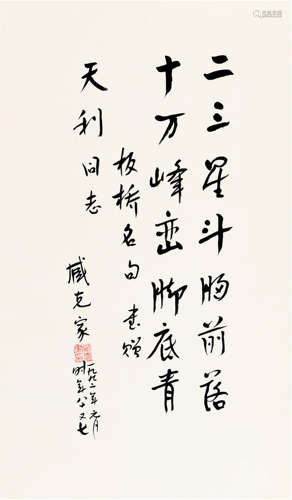 二三星斗胸前落
十万峰峦脚底青
板橋名句 書赠
天利同志
臧克家
一九九二年元月
时年八又七